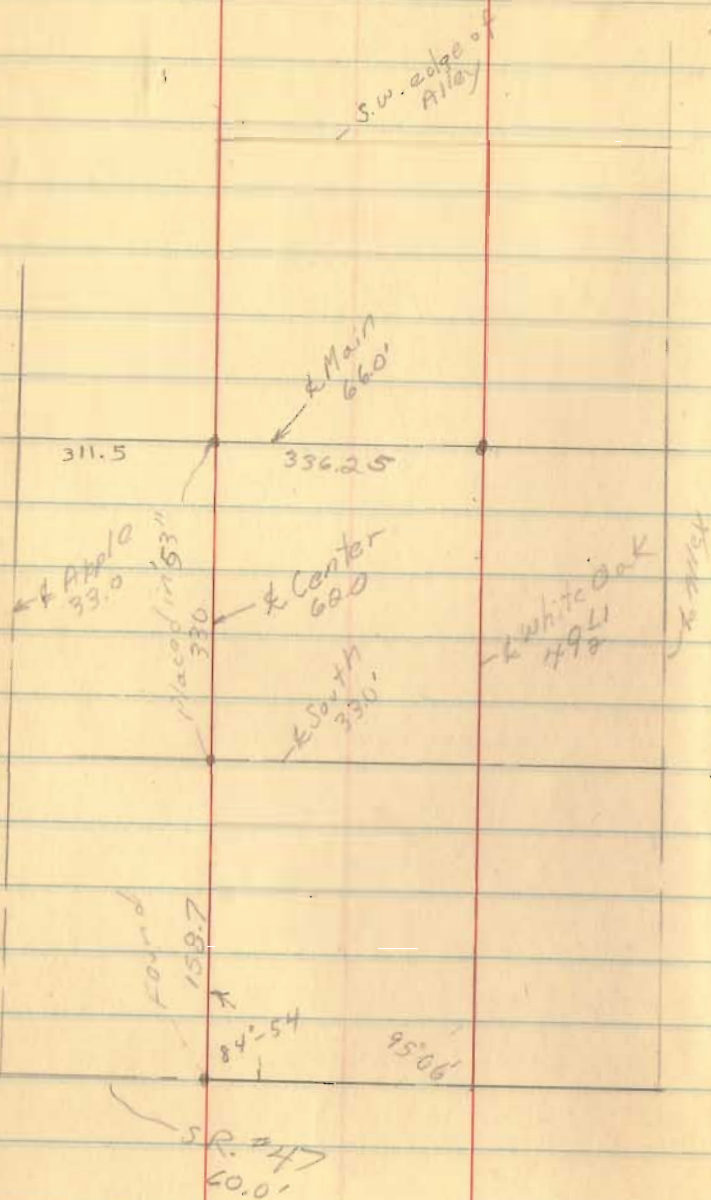 S.W. edge of
Alley
℄ Main
66.0'
311.5
336.25
℄ Apple
33.0
Placed in '53"
330
℄ Center
℄ White Oak
℄ South
33.0'
Found
158.7
84°-54
95°06'
S.R. #47
60.0'